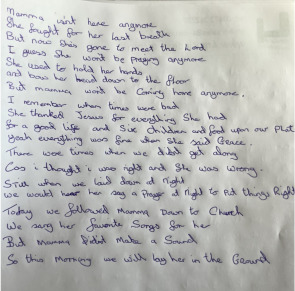 Mamma isn't here anymore
She fought for her last breath
But now she's gone to meet the Lord
I guess she won't be praying anymore
She used to hold her hands
and bow her head down to the floor
But mamma won't be Coming home anymore.
I remember when times were bad
She thanked Jesus for everything she had
for a good life and Six Children and food upon our Plat
Yeah everything was fine when she said Grace.
There were times when we didnt get along
Cos i thought i was right and She was wrong.
Still when we laid down at Night
we would hear her say a Prayer at Night to Put things Right
Today we followed Mamma Down to Church
We sang her favorite Songs for her
But Mamma Didnt Make a Sound
So this Morning we will lay her in the Ground